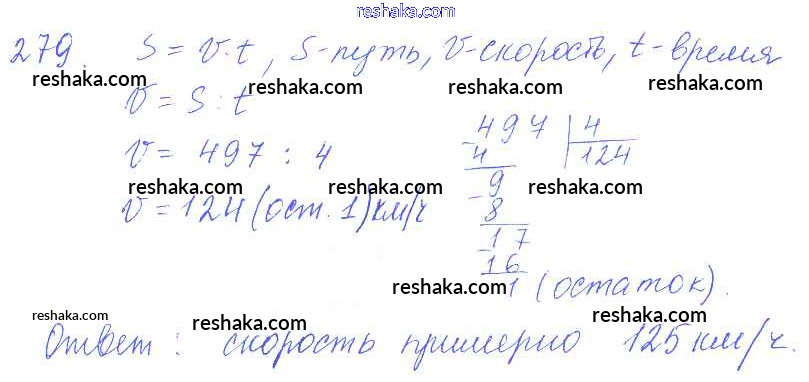 reshaka.com
279. S = v·t, S-путь, v-скорость, t-время
reshaka.com reshaka.com reshaka.com
v = S : t
v = 497 : 4
v = 124 (ост. 1) км/ч
-497 | 4
4 124
-9
8
-17
16
1 (остаток).
reshaka.com reshaka.com
reshaka.com
reshaka.com
reshaka.com reshaka.com
Ответ: скорость примерно 125 км/ч.
reshaka.com reshaka.com